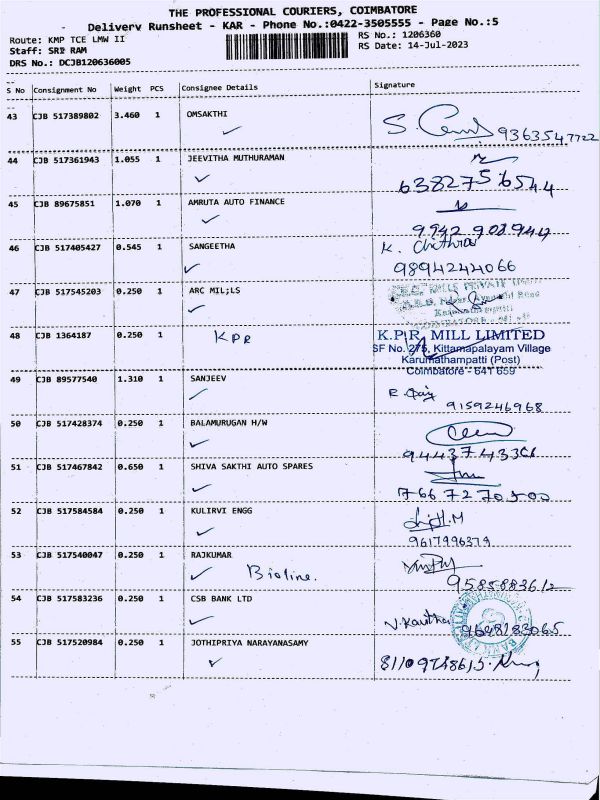 THE PROFESSIONAL COURIERS, COIMBATORE
Delivery Runsheet - KAR - Phone No.:0422-3505555 - Page No.:5
Route: KMP TCE LMW II
RS No.: 1206360
Staff: SRI RAM
RS Date: 14-Jul-2023
DRS No.: DCJB120636005
S No Consignment No Weight PCS Consignee Details Signature
43 CJB 517389802 3.460 1 OMSAKTHI
9363547722
44 CJB 517361943 1.055 1 JEEVITHA MUTHURAMAN
6382756544
45 CJB 89675851 1.070 1 AMRUTA AUTO FINANCE
9942 908944
46 CJB 517405427 0.545 1 SANGEETHA K. Chithra
9894244066
47 CJB 517545203 0.250 1 ARC MIL;LS
48 CJB 1364187 0.250 1 KPR K.P.R. MILL LIMITED
SF No. 275, Kittamapalayam Village
Karumathampatti (Post)
Coimbatore - 641 659
49 CJB 89577540 1.310 1 SANJEEV
9159246968
50 CJB 517428374 0.250 1 BALAMURUGAN H/W
51 CJB 517467842 0.650 1 SHIVA SAKTHI AUTO SPARES
7667270500
52 CJB 517584584 0.250 1 KULIRVI ENGG
9617996379
53 CJB 517540047 0.250 1 RAJKUMAR
Bioline.
9585883612
54 CJB 517583236 0.250 1 CSB BANK LTD
N. Kavitha 9698183065
55 CJB 517520984 0.250 1 JOTHIPRIYA NARAYANASAMY